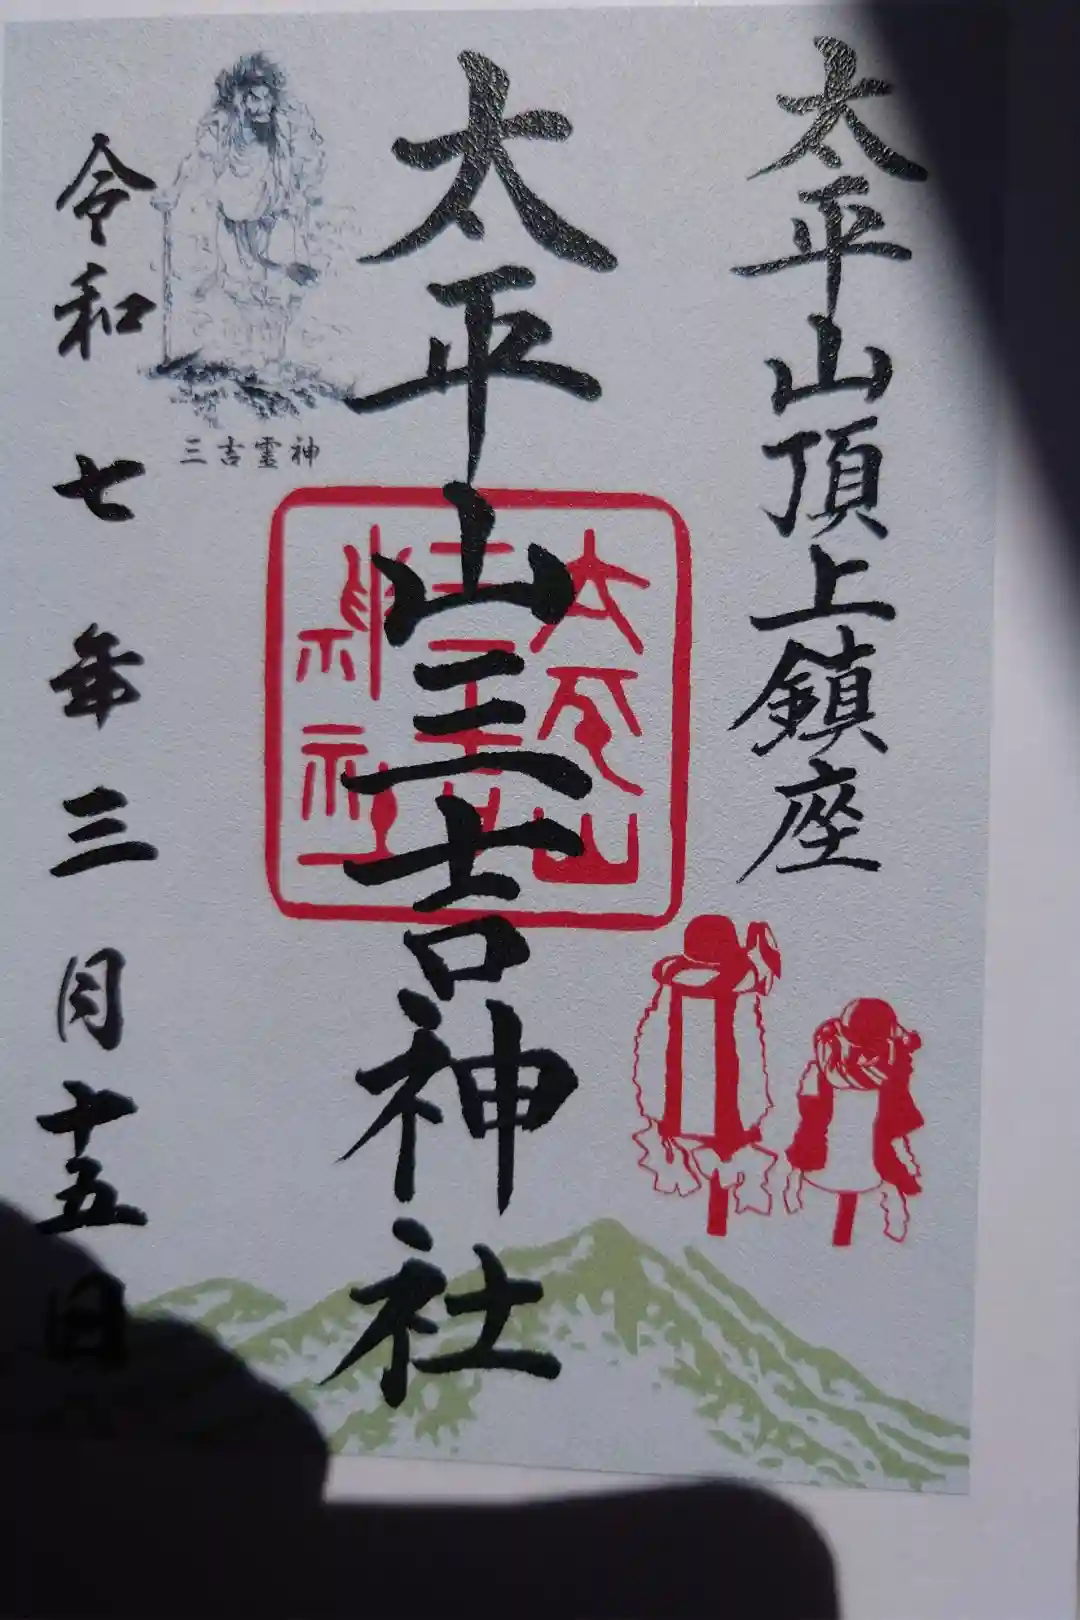 太平山頂上鎮座
太平山三吉神社
太平山
三吉
神社
三吉霊神
令和七年三月十五日